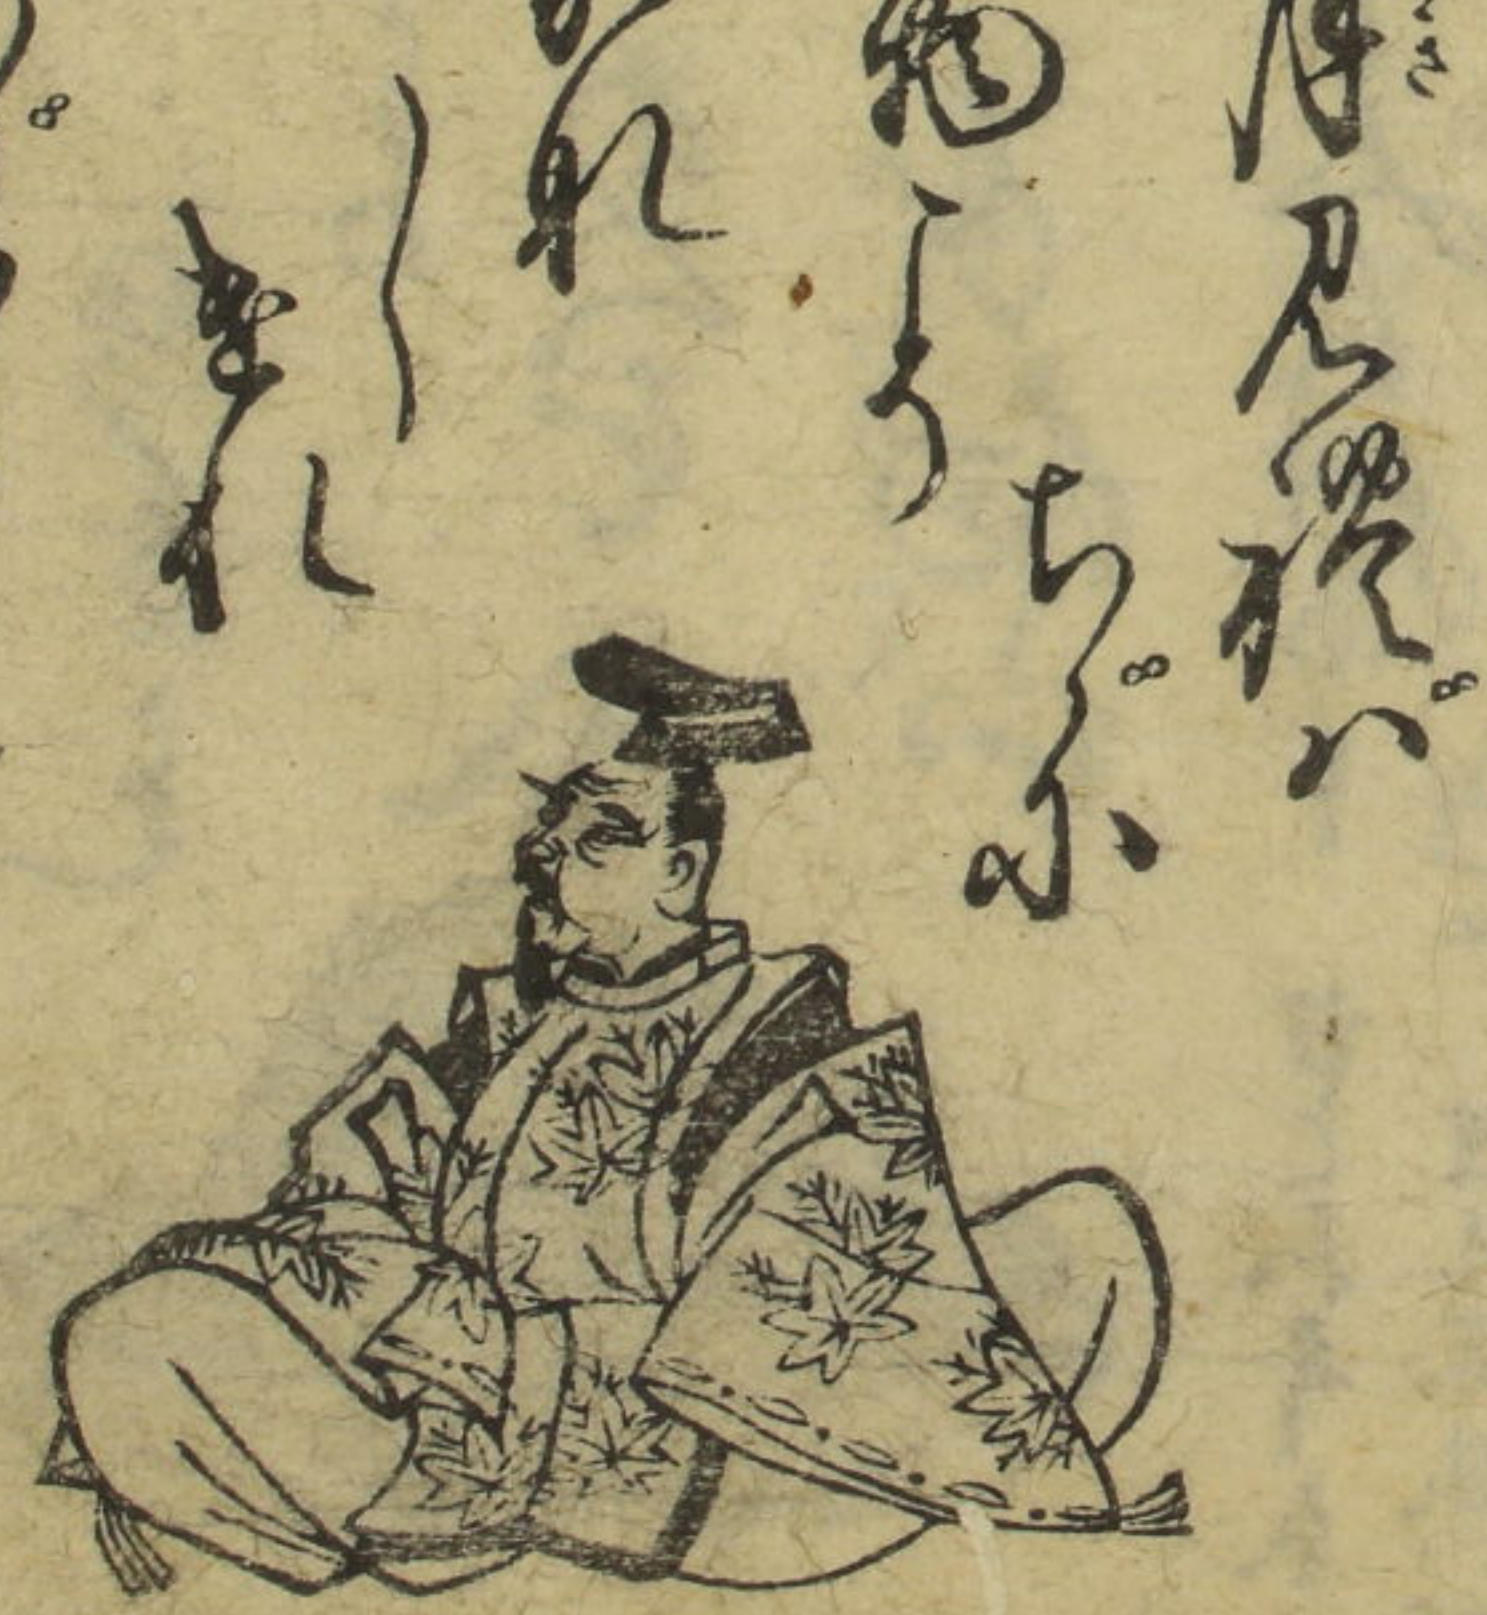 月見禮ば
ちゞに
物こそ
かな
し
けれ